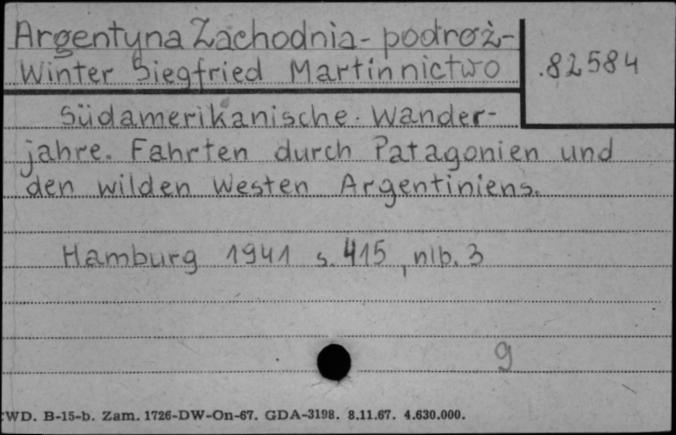 Argentyna Zachodnia - podróż-
Winter Siegfried Martin nictwo
.82584
Südamerikanische Wander-
jahre. Fahrten durch Patagonien und
den wilden Westen Argentiniens.
Hamburg 1941 s. 415, nlb. 3
g
WD. B-15-b. Zam. 1726-DW-On-67. GDA-3198. 8.11.67. 4.630.000.